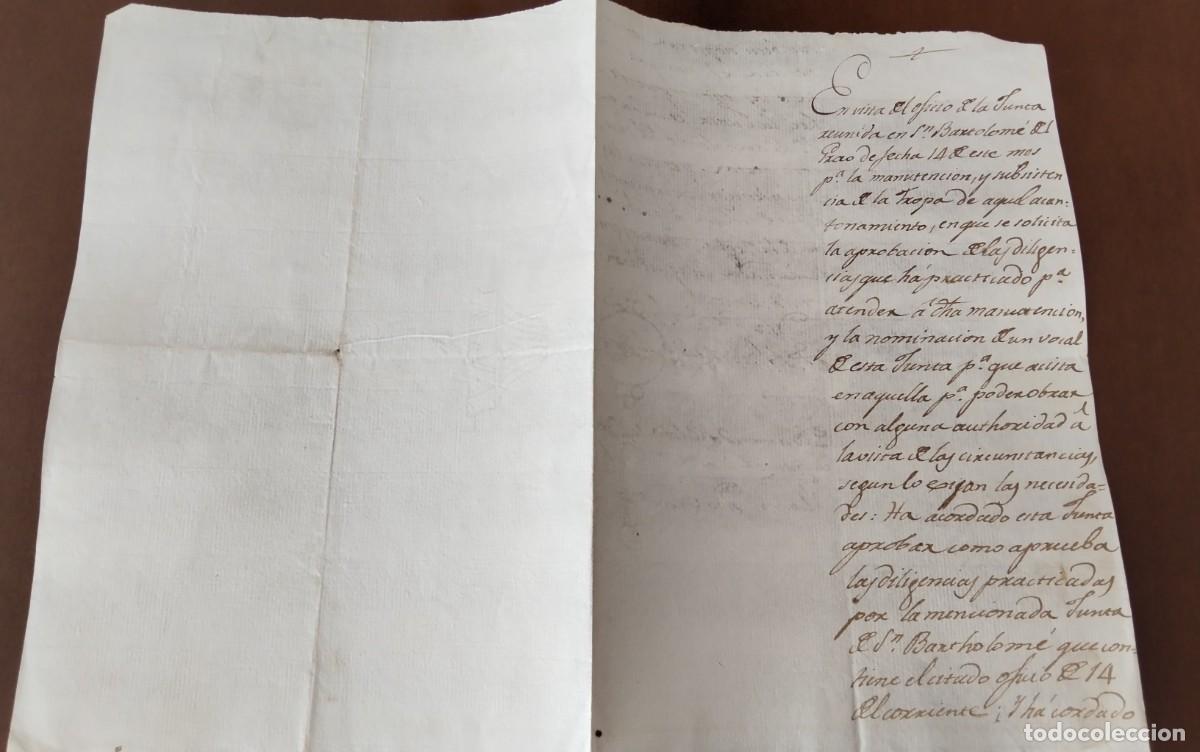 +
En vista del oficio de la Junta
reunida en Sn. Bartolomé del
Grao de fecha 14 de este mes
pa. la manutencion, y subsisten
cia de la Tropa de aquel acan-
tonamiento, en que se solicita
la aprobacion de las diligen-
cias que há practicado pa.
atender á dha manutencion,
y la nominacion de un vocal
de esta Junta pa. que asista
en aquella pa. poder obrar
con alguna authoridad á
la vista de las circunstancias,
segun lo exijan las necesida-
des: Ha acordado esta Junta
aprobar como aprueba
las diligencias practicadas
por la mencionada Junta
de Sn. Bartholomé que con-
tiene el citado oficio de 14
del corriente; y há acordado
todocoleccion